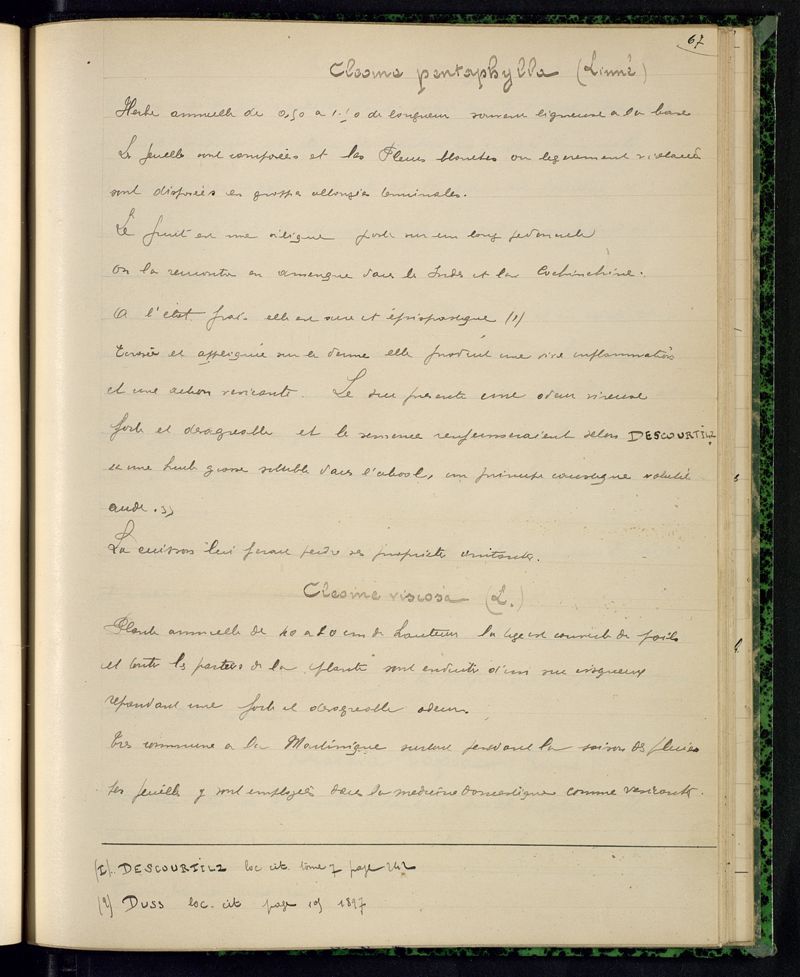 67
Cleome pentaphylla (Linné)
Herbe annuelle de 0,50 a 1.10 de longueur souvent ligneuse a la base
Les feuilles sont composées et les Fleurs blanches ou legerement violacées
sont disposées en grappes allongées terminales.
Le fruit est une silique porté sur un long pedoncule
On la rencontre en amerique dans les Indes et la Cochinchine.
A l'état frais elle est acre et épispastique (1)
Ecrasée et appliquée sur le derme elle produit une vive inflammation
et une action vesicante. Le suc presente une odeur vireuse
forte et desagreable et la semence renfermeraient selon DESCOURTILZ
une huile grasse soluble dans l'alcool, un principe caustique volatil
acide.
La cuisson lui ferait perdre ses proprietes irritantes.
Cleome viscosa (L.)
Plante annuelle de 40 a 80 cm de hauteur la tige est couverte de poils
et toutes les parties de la plante sont enduites d'un suc visqueux
repandant une forte et desagreable odeur.
Tres commune a la Martinique surtout pendant la saison des pluies
Les feuilles y sont employées dans la medecine domestique comme vesicante.
(I). DESCOURTILZ loc. cit. tome 7 page 242
(2) DUSS loc. cit page 1897